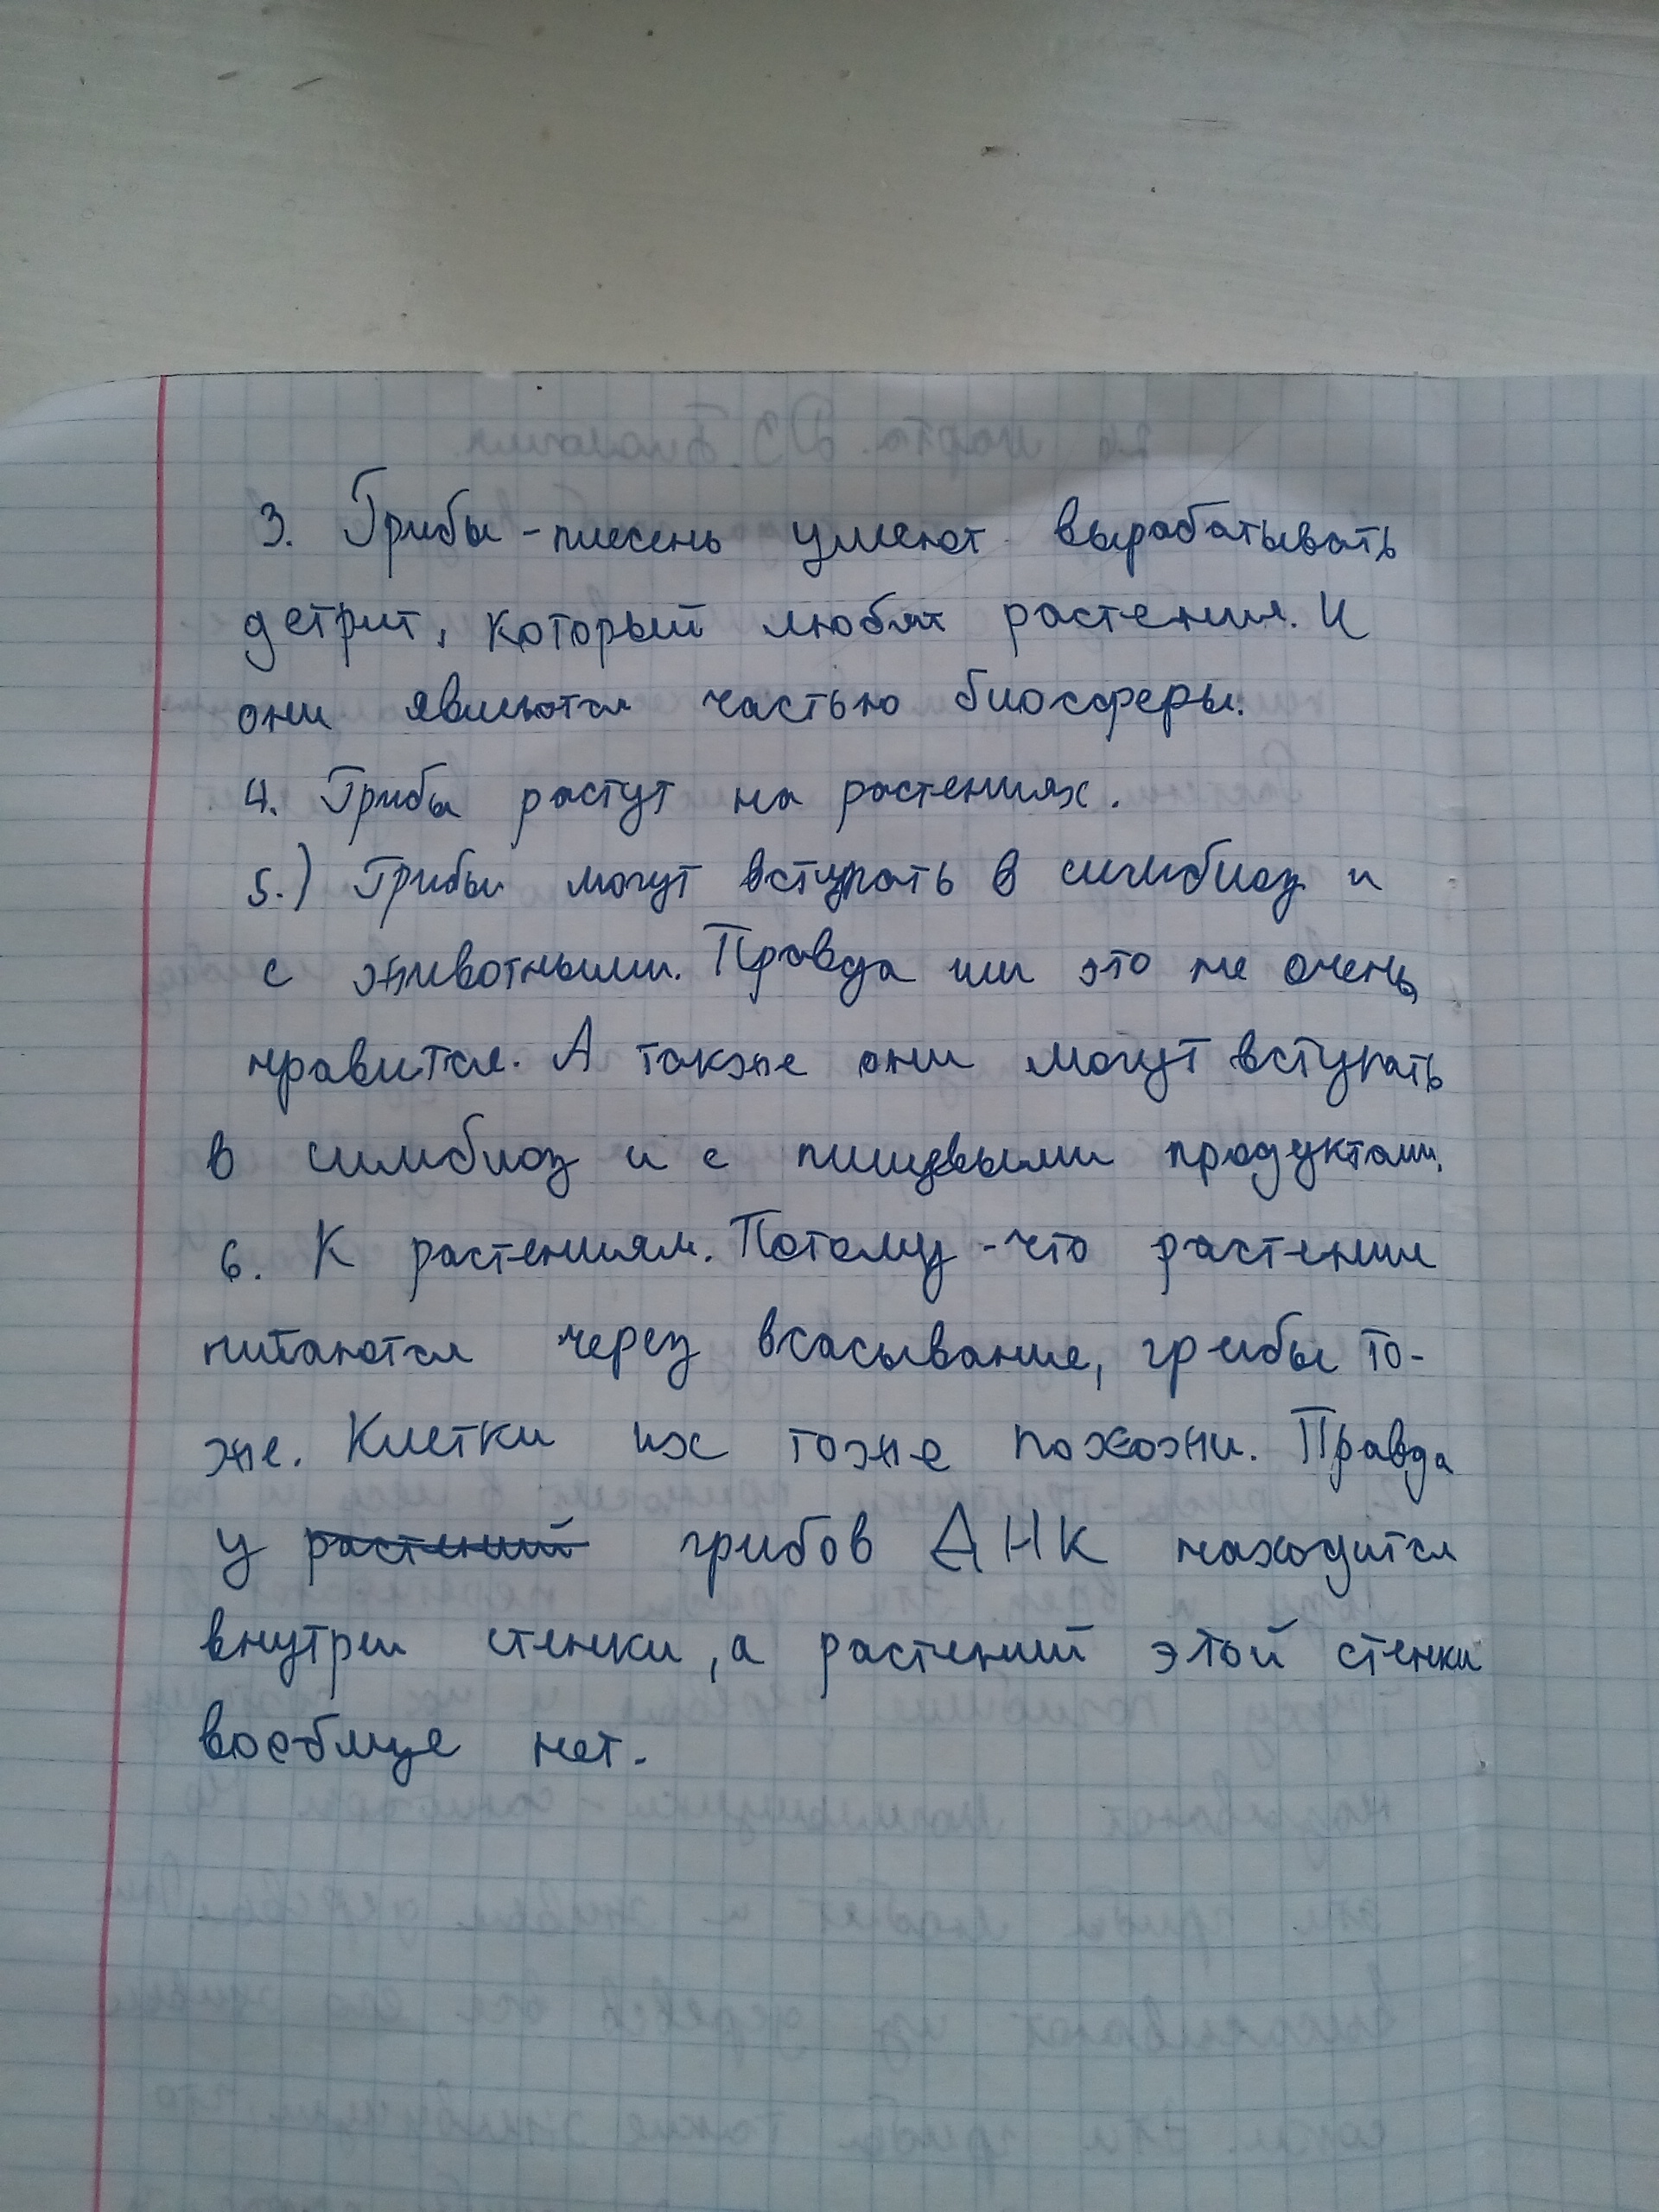 3. Грибы-плесень умеют вырабатывать
детрит, который любят растения. И
они являются частью биосферы.
4. Грибы растут на растениях.
5.) Грибы могут вступать в симбиоз и
с животными. Правда им это не очень
нравится. А также они могут вступать
в симбиоз и с пищевыми продуктами.
6. К растениям. Потому-что растения
питаются через всасывание, грибы то-
же. Клетки их тоже похожи. Правда
у растений грибов ДНК находится
внутри стенки, а растений этой стенки
вообще нет.